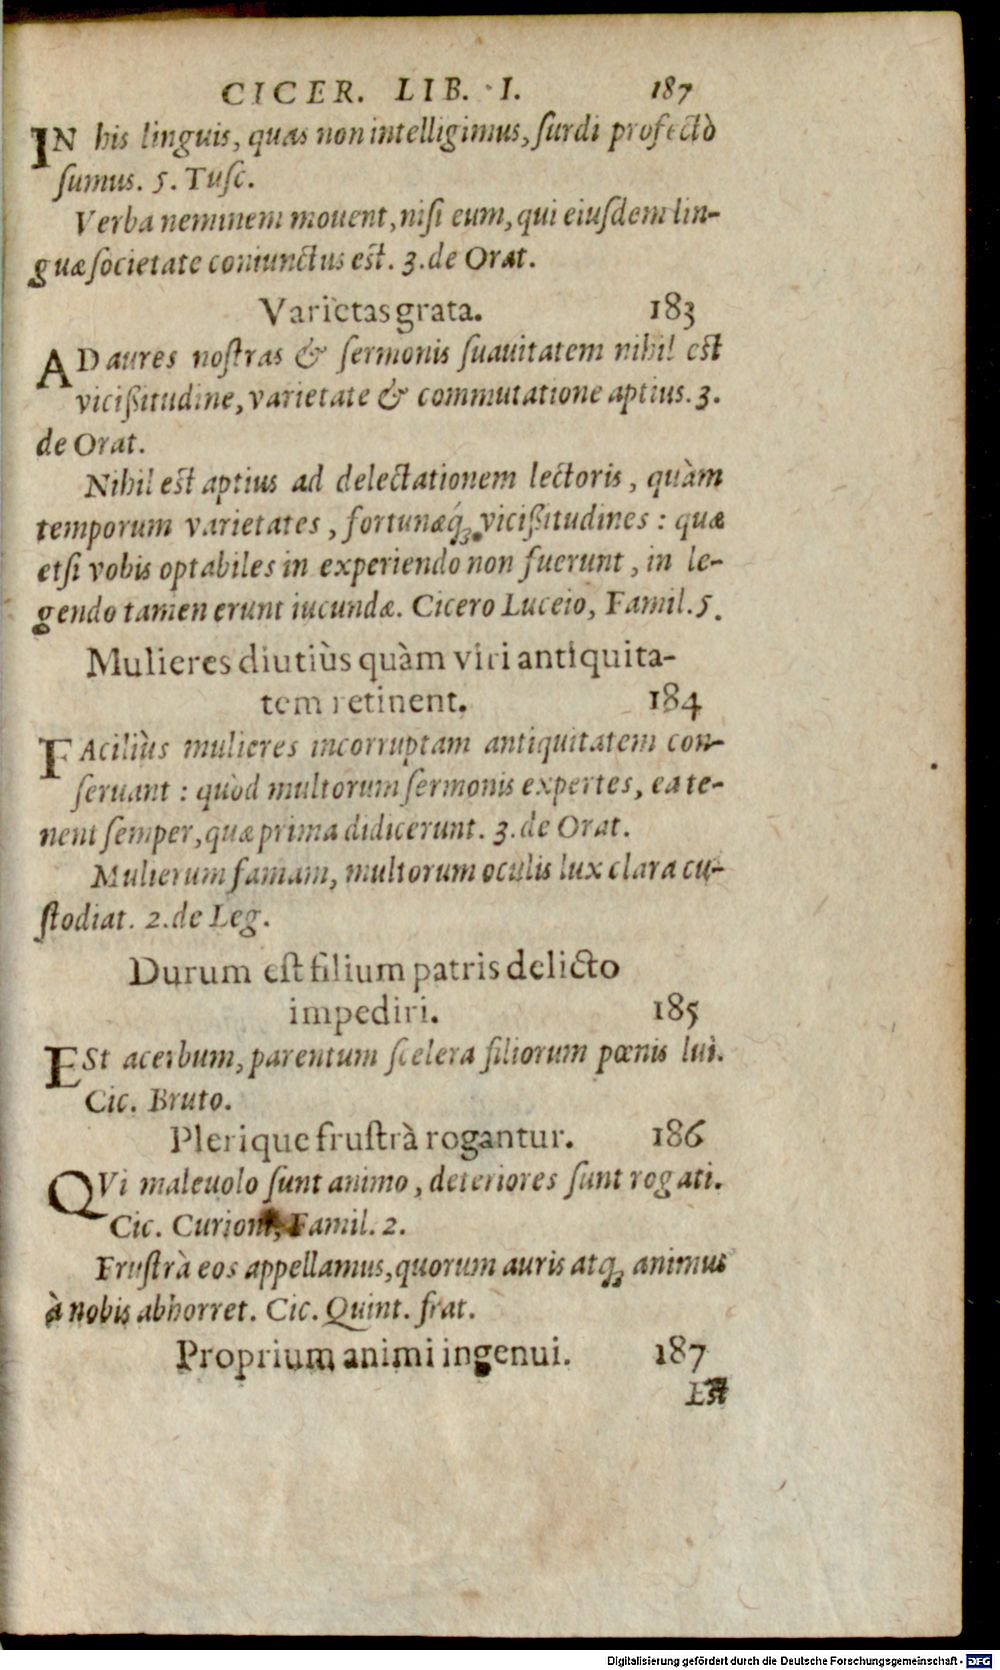 CICER. LIB. I. 187
IN his linguis, quas non intelligimus, ſurdi profectò
ſumus. 5. Tuſc.
Verba neminem mouent, niſi eum, qui eiuſdem lin-
guæ ſocietate coniunctus eſt. 3. de Orat.
Varietas grata. 183
AD aures noſtras & ſermonis ſuauitatem nihil eſt
vicißitudine, varietate & commutatione aptius. 3.
de Orat.
Nihil eſt aptius ad delectationem lectoris, quàm
temporum varietates, fortunæq́; vicißitudines: quæ
etſi vobis optabiles in experiendo non fuerunt, in le-
gendo tamen erunt iucundæ. Cicero Luceio, Famil. 5.
Mulieres diutiùs quàm viri antiquita-
tem retinent. 184
FAciliùs mulieres incorruptam antiquitatem con-
ſeruant: quòd multorum ſermonis expertes, ea te-
nent ſemper, quæ prima didicerunt. 3. de Orat.
Mulierum famam, multorum oculis lux clara cu-
ſtodiat. 2. de Leg.
Durum eſt filium patris delicto
impediri. 185
ESt acerbum, parentum ſcelera filiorum pœnis lui.
Cic. Bruto.
Plerique fruſtrà rogantur. 186
QVi maleuolo ſunt animo, deteriores ſunt rogati.
Cic. Curioni, Famil. 2.
Fruſtrà eos appellamus, quorum auris atq; animus
à nobis abhorret. Cic. Quint. frat.
Proprium animi ingenui. 187
Eſt
Digitalisierung gefördert durch die Deutsche Forschungsgemeinschaft - DFG